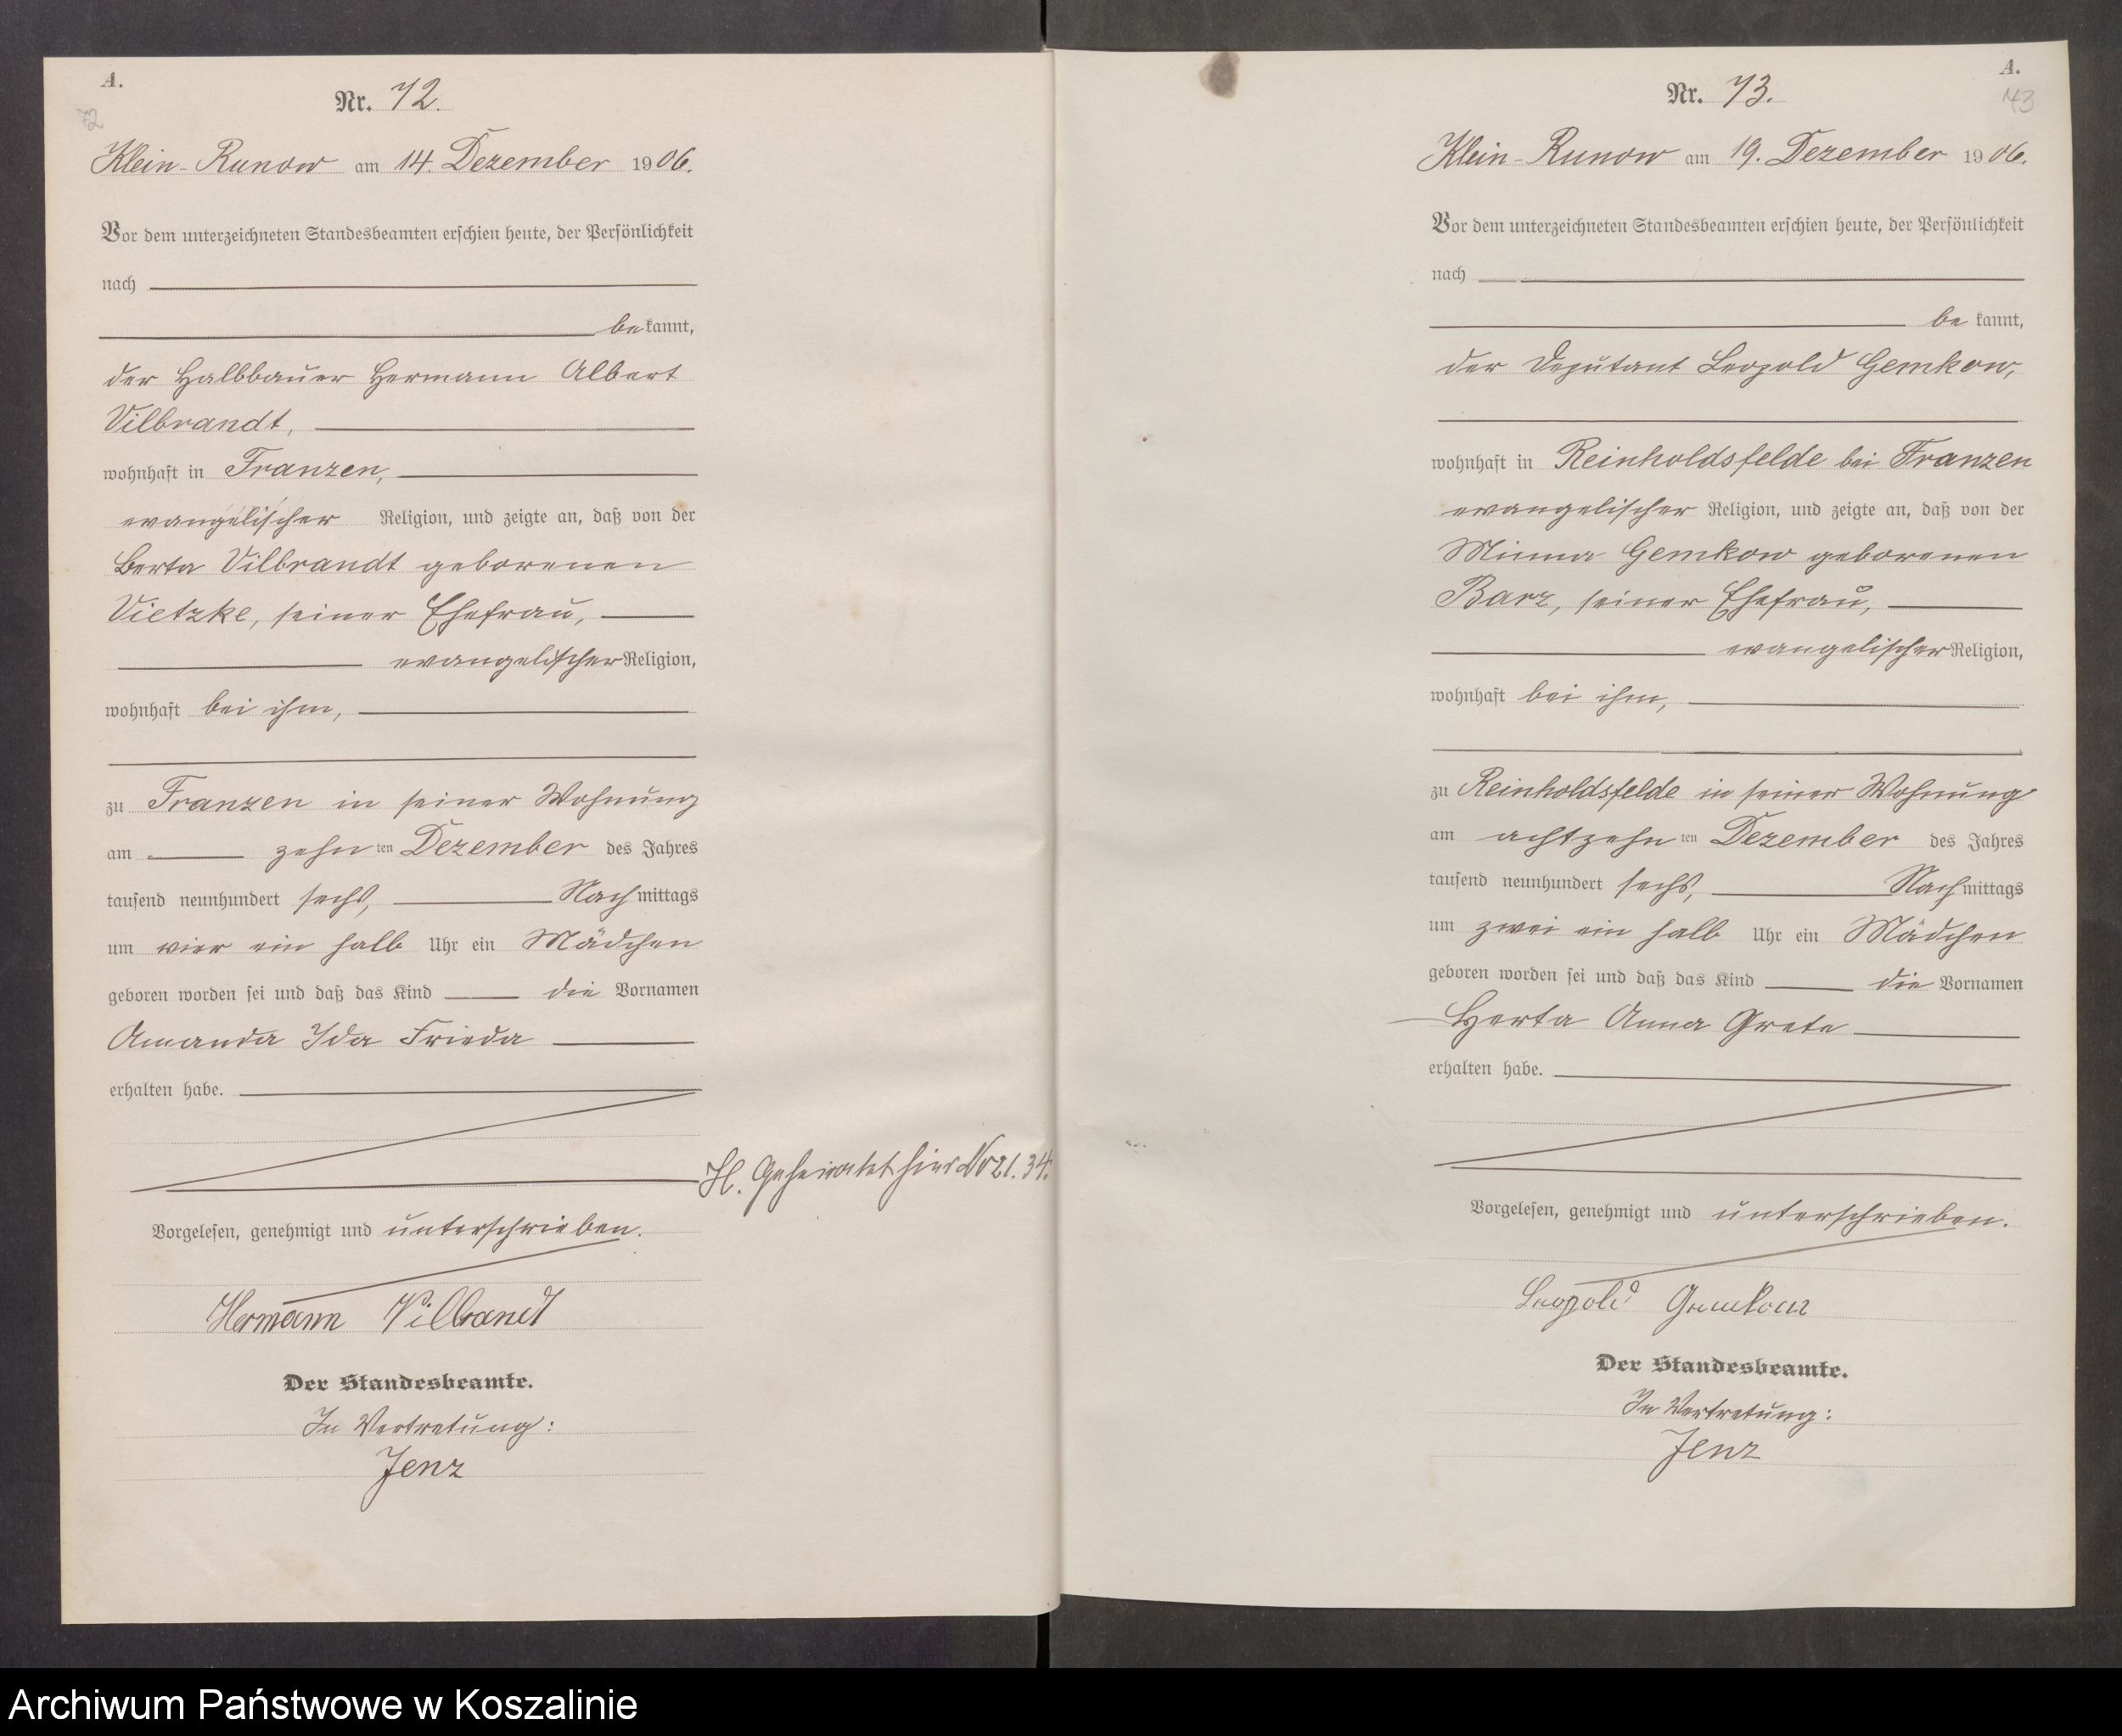 A.
72
Nr. 72.
Klein-Runow am 14. Dezember 1906.
Vor dem unterzeichneten Standesbeamten erschien heute, der Persönlichkeit
nach
bekannt,
der Halbbauer Hermann Albert
Vilbrandt,
wohnhaft in Franzen,
evangelischer Religion, und zeigte an, daß von der
Berta Vilbrandt geborenen
Vietzke, seiner Ehefrau,
evangelischer Religion,
wohnhaft bei ihm,
zu Franzen in seiner Wohnung
am zehnten Dezember des Jahres
tausend neunhundert sechs, Nachmittags
um vier ein halb Uhr ein Mädchen
geboren worden sei und daß das Kind die Vornamen
Amanda Ida Frieda
erhalten habe.
H. Geheiratet hier No 21. 34.
Vorgelesen, genehmigt und unterschrieben.
Hermann Vilbrandt
Der Standesbeamte.
In Vertretung:
Jenz
A.
73
Nr. 73.
Klein-Runow am 19. Dezember 1906.
Vor dem unterzeichneten Standesbeamten erschien heute, der Persönlichkeit
nach
bekannt,
der Deputant Leopold Gemkow,
wohnhaft in Reinholdsfelde bei Franzen
evangelischer Religion, und zeigte an, daß von der
Minna Gemkow geborenen
Barz, seiner Ehefrau,
evangelischer Religion,
wohnhaft bei ihm,
zu Reinholdsfelde in seiner Wohnung
am achtzehnten Dezember des Jahres
tausend neunhundert sechs, Nachmittags
um zwei ein halb Uhr ein Mädchen
geboren worden sei und daß das Kind die Vornamen
Herta Anna Grete
erhalten habe.
Vorgelesen, genehmigt und unterschrieben.
Leopold Gemkow
Der Standesbeamte.
In Vertretung:
Jenz
Archiwum Państwowe w Koszalinie